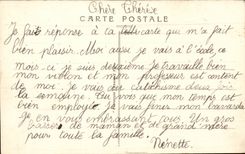 Chère Thérèse
CARTE POSTALE
Je fais réponse à ta carte qui m'a fait
bien plaisir. Moi aussi je vais à l'école, ce
mois-ci je suis deuxième je travaille bien
mon violon et mon professeur est content
de moi. Je vais au catéchisme deux fois
la semaine. Tu vois que mon temps est
bien employé. Je vais finir mon bavardage
en vous embrassant tous. Un gros
baiser de maman et de grand'mère
pour toute la famille.
Nénette.